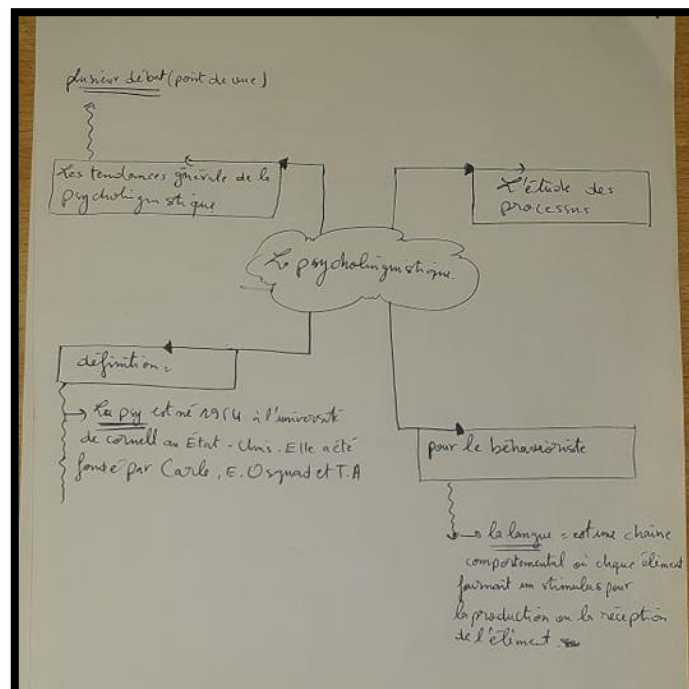 plusieur débat (point de vue)
Les tendances générale de la
psycholinguistique
L'étude des
processus
La psycholinguistique.
définition =
La psy est né 1954 à l'université
de cornell au État - Unis. Elle a été
fondé par Carle, E. Osguad et T.A
pour le béhavioriste
la langue = est une chaine
comportemental où chque élément
fournait un stimulus pour
la production ou la réception
de l'élément.